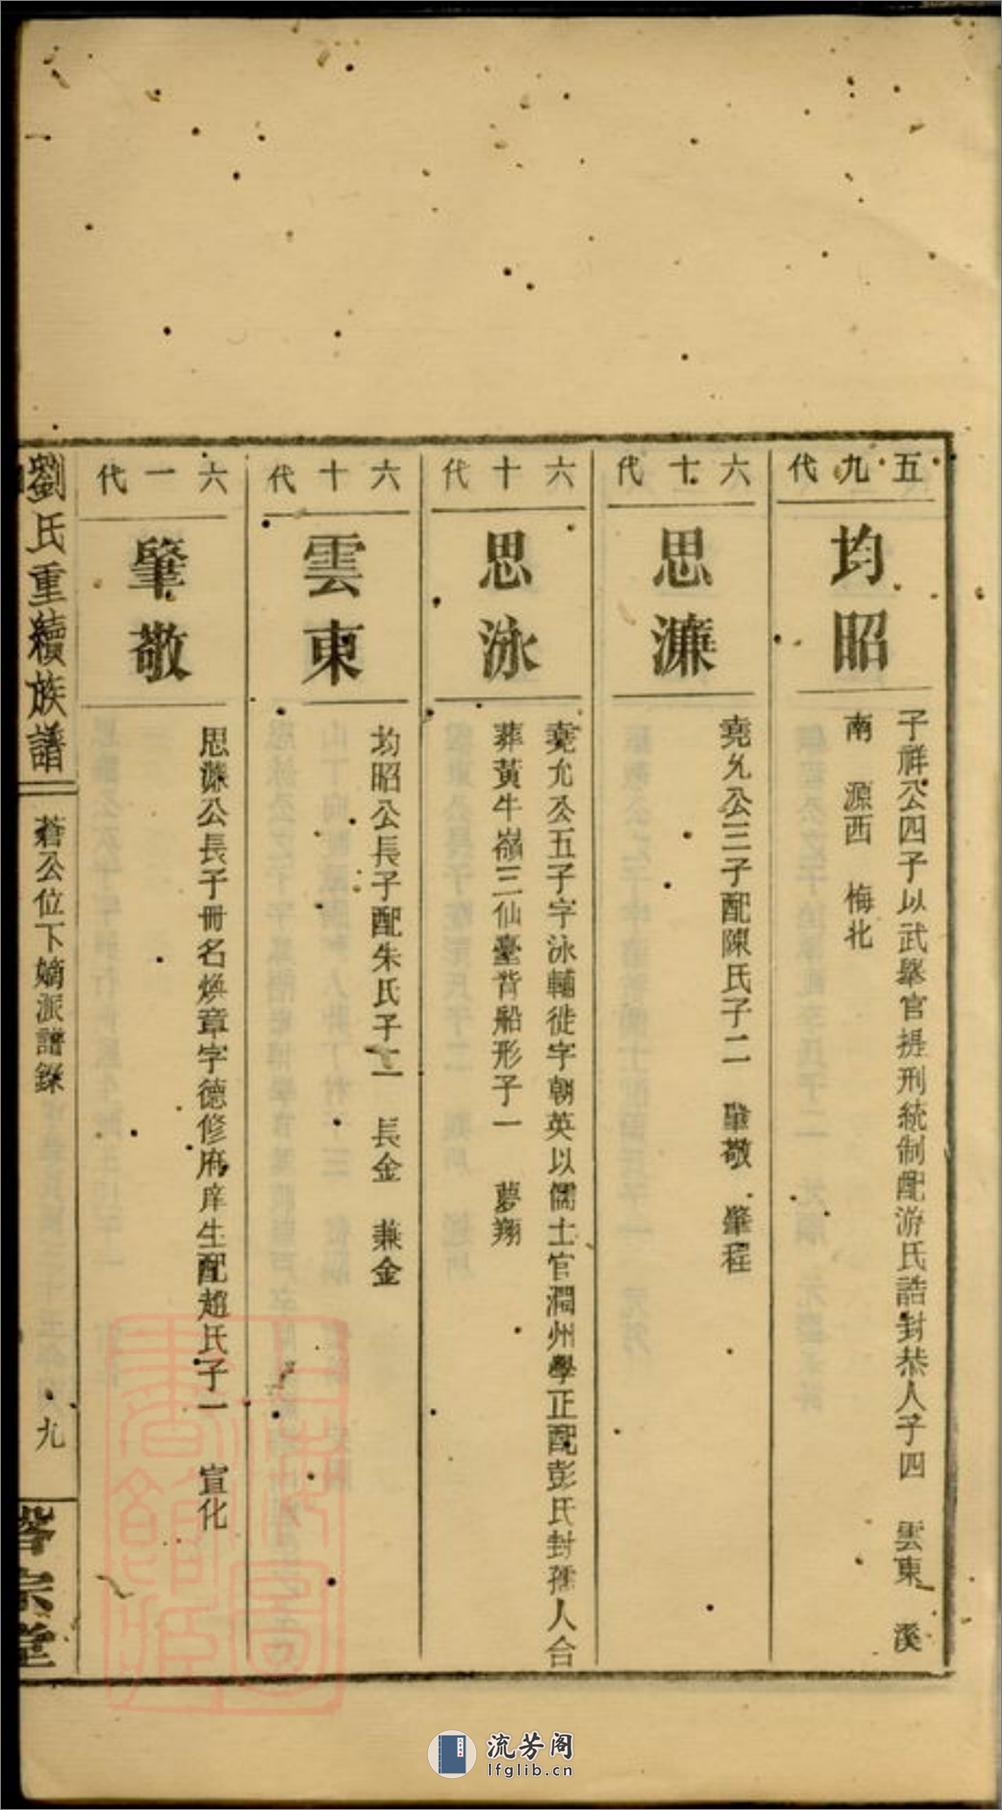 五九代
均昭
子祥公四子以武舉官提刑統制配游氏誥封恭人子四　雲東　溪
南　源西　梅北
六十代
思濂
堯允公三子配陳氏子二　肇敬　肇程
六十代
思泳
堯允公五子字泳輔徙字朝英以儒士官潤州學正配彭氏封孺人合
葬黃牛嶺三仙臺背船形子一　夢翔
六十代
雲東
均昭公長子配朱氏子二　長金　兼金
六一代
肇敬
思濂公長子冊名煥章字德修府庠生配趙氏子一　宣化
劉氏重續族譜
蒼公位下嫡派譜錄
九
宗堂
流芳阁
lfglib.cn